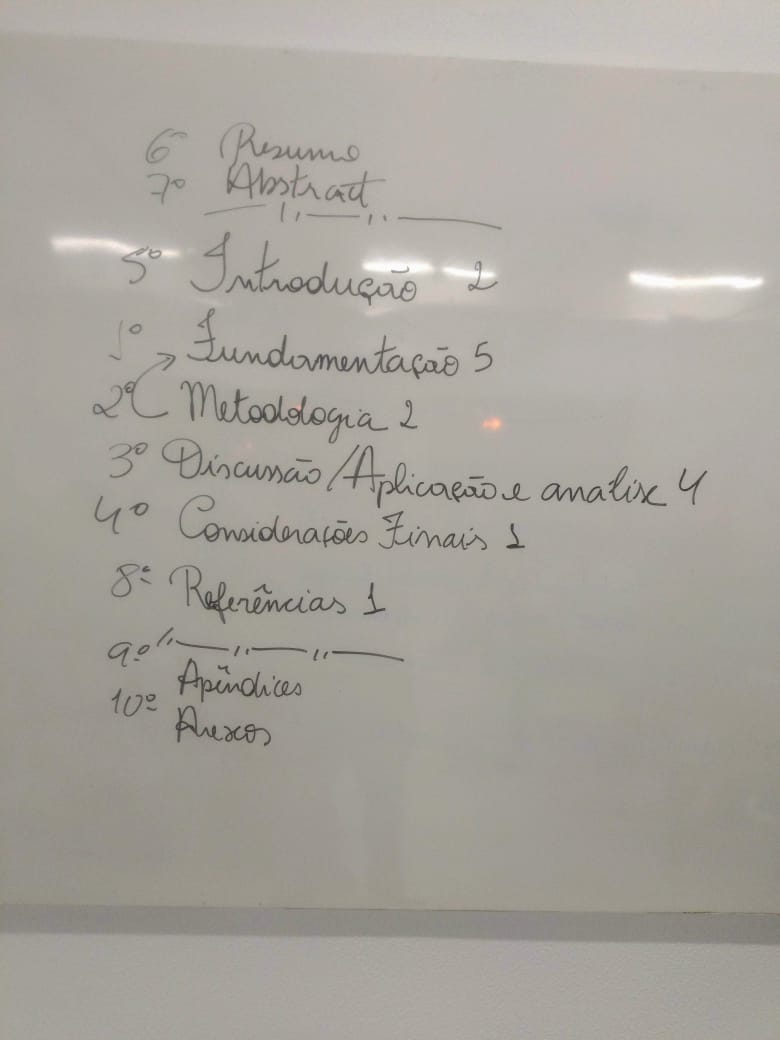 6º Resumo
7º Abstract
5º Introdução 2
1º Fundamentação 5
2º Metodologia 2
3º Discussão/Aplicação e analise 4
4º Considerações Finais 1
8º Referências 1
9º Apêndices
10º Anexos